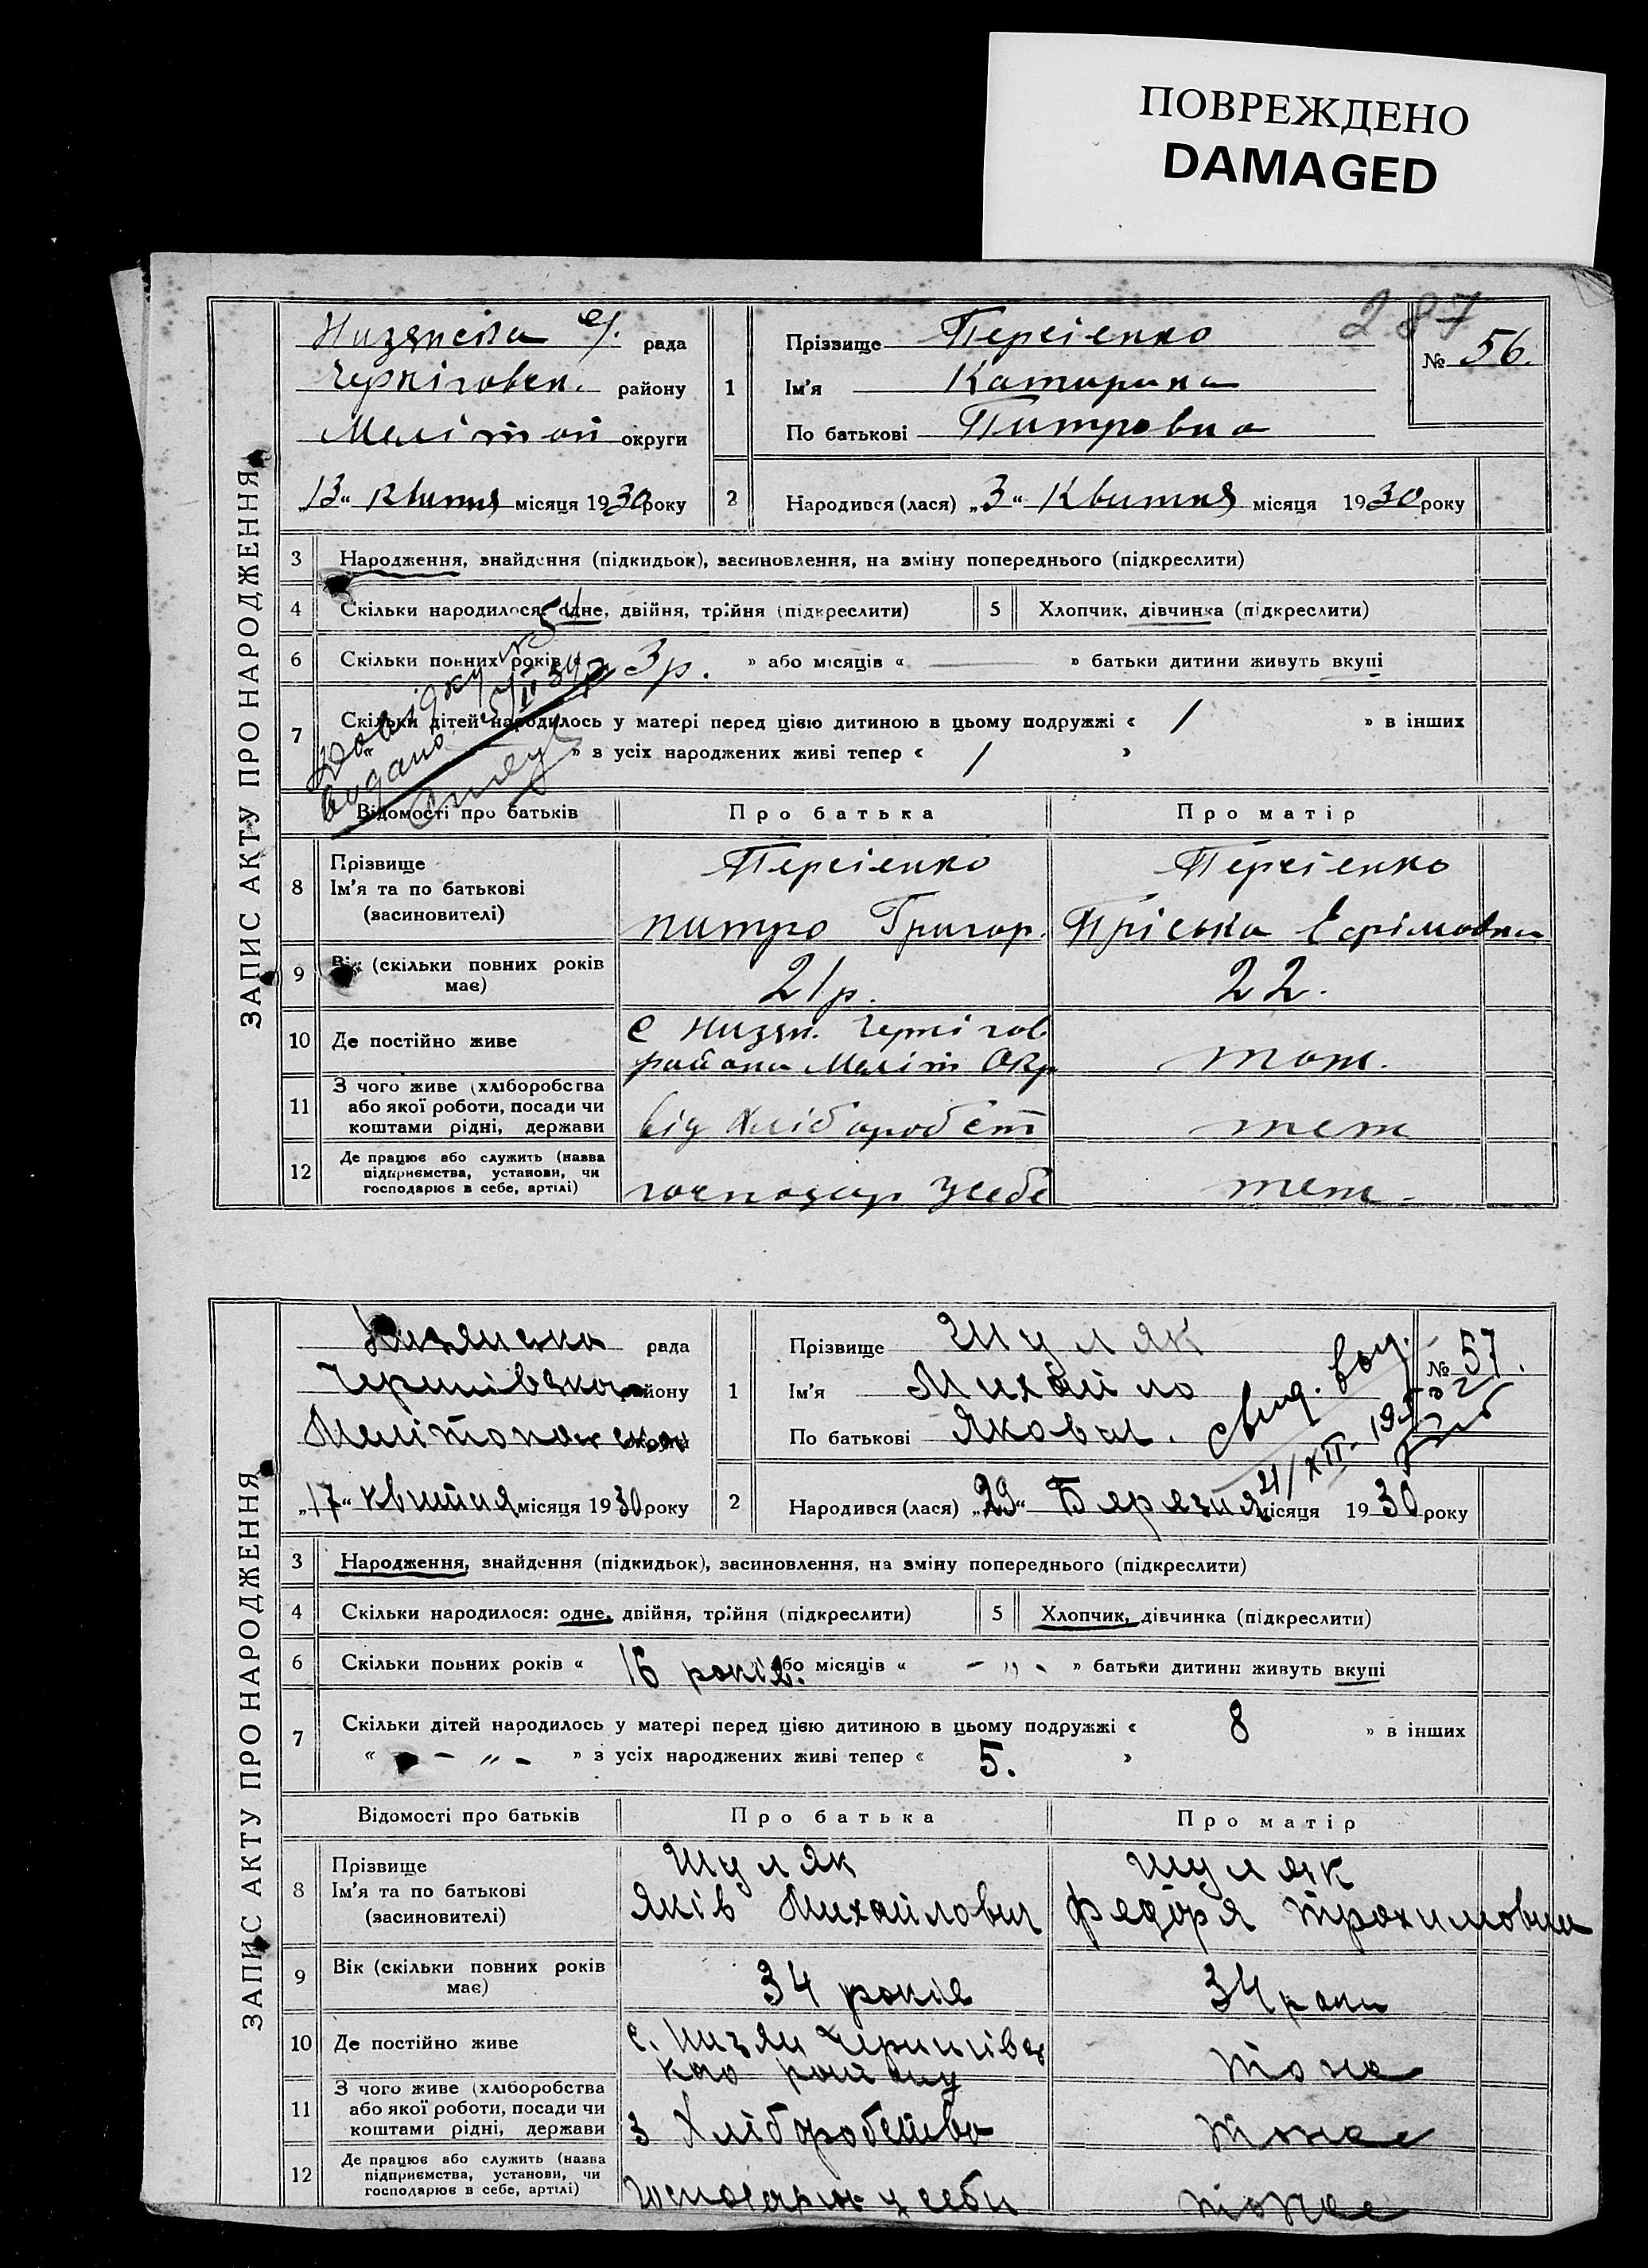 ПОВРЕЖДЕНО
DAMAGED
287
ЗАПИС АКТУ ПРО НАРОДЖЕННЯ
Низянська с/. рада
Черніговск. району
Мелітоп округи
„13“ Квитня місяця 1930 року
1
Прізвище Персіенко
Ім'я Катирина
По батькові Питровна
№ 56.
2
Народився (лася) „3“ Квитня місяця 1930 року
3 Народження, знайдення (підкидьок), засиновлення, на зміну попереднього (підкреслити)
4 Скільки народилося: одне, двійня, трійня (підкреслити)
5 Хлопчик, дівчинка (підкреслити)
6 Скільки повних років « 3 р. » або місяців « — » батьки дитини живуть вкупі
7 Скільки дітей народилось у матері перед цією дитиною в цьому подружжі « 1 » в інших
» з усіх народжених живі тепер « 1 »
Довідку №
видано
Відомості про батьків Про батька Про матір
8 Прізвище
Ім'я та по батькові
(засиновителі)
Персіенко
питро Григор.
Персіенко
Пріська Єфімовна
9 Вік (скільки повних років
має)
21 р.
22.
10 Де постійно живе
с Низян. Чернігов
района Меліт Окр
тож.
11 З чого живе (хліборобства
або якої роботи, посади чи
коштами рідні, держави
від хліборобст
теж
12 Де працює або служить (назва
підприємства, установи, чи
господарює в себе, артілі)
господар усебе
теж.
ЗАПИС АКТУ ПРО НАРОДЖЕННЯ
Низянська рада
району
округи
„17“ квитня місяця 1930 року
1
Прізвище Шуляк
Ім'я Михайло
По батькові Якович.
№ 57.
свид. выд.
21/XII-
2
Народився (лася) „29“ Бярязня місяця 1930 року
3 Народження, знайдення (підкидьок), засиновлення, на зміну попереднього (підкреслити)
4 Скільки народилося: одне, двійня, трійня (підкреслити)
5 Хлопчик, дівчинка (підкреслити)
6 Скільки повних років « 16 років. » або місяців « - „ - » батьки дитини живуть вкупі
7 Скільки дітей народилось у матері перед цією дитиною в цьому подружжі « 8 » в інших
« - „ - » з усіх народжених живі тепер « 5. »
Відомості про батьків Про батька Про матір
8 Прізвище
Ім'я та по батькові
(засиновителі)
Шуляк
Яків Михайлович
Шуляк
Федоря Трохимовна
9 Вік (скільки повних років
має)
34 років
34 роки
10 Де постійно живе
с. Низян Чернигівсь
кого району
тоже
11 З чого живе (хліборобства
або якої роботи, посади чи
коштами рідні, держави
з Хліборобства
тоже
12 Де працює або служить (назва
підприємства, установи, чи
господарює в себе, артілі)
господарює у себи
тоже